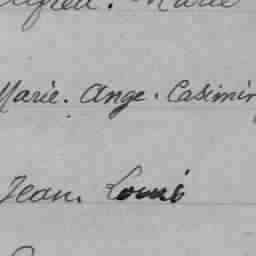 Alfred. Marie
Marie. Ange. Casimir
Jean. Louis